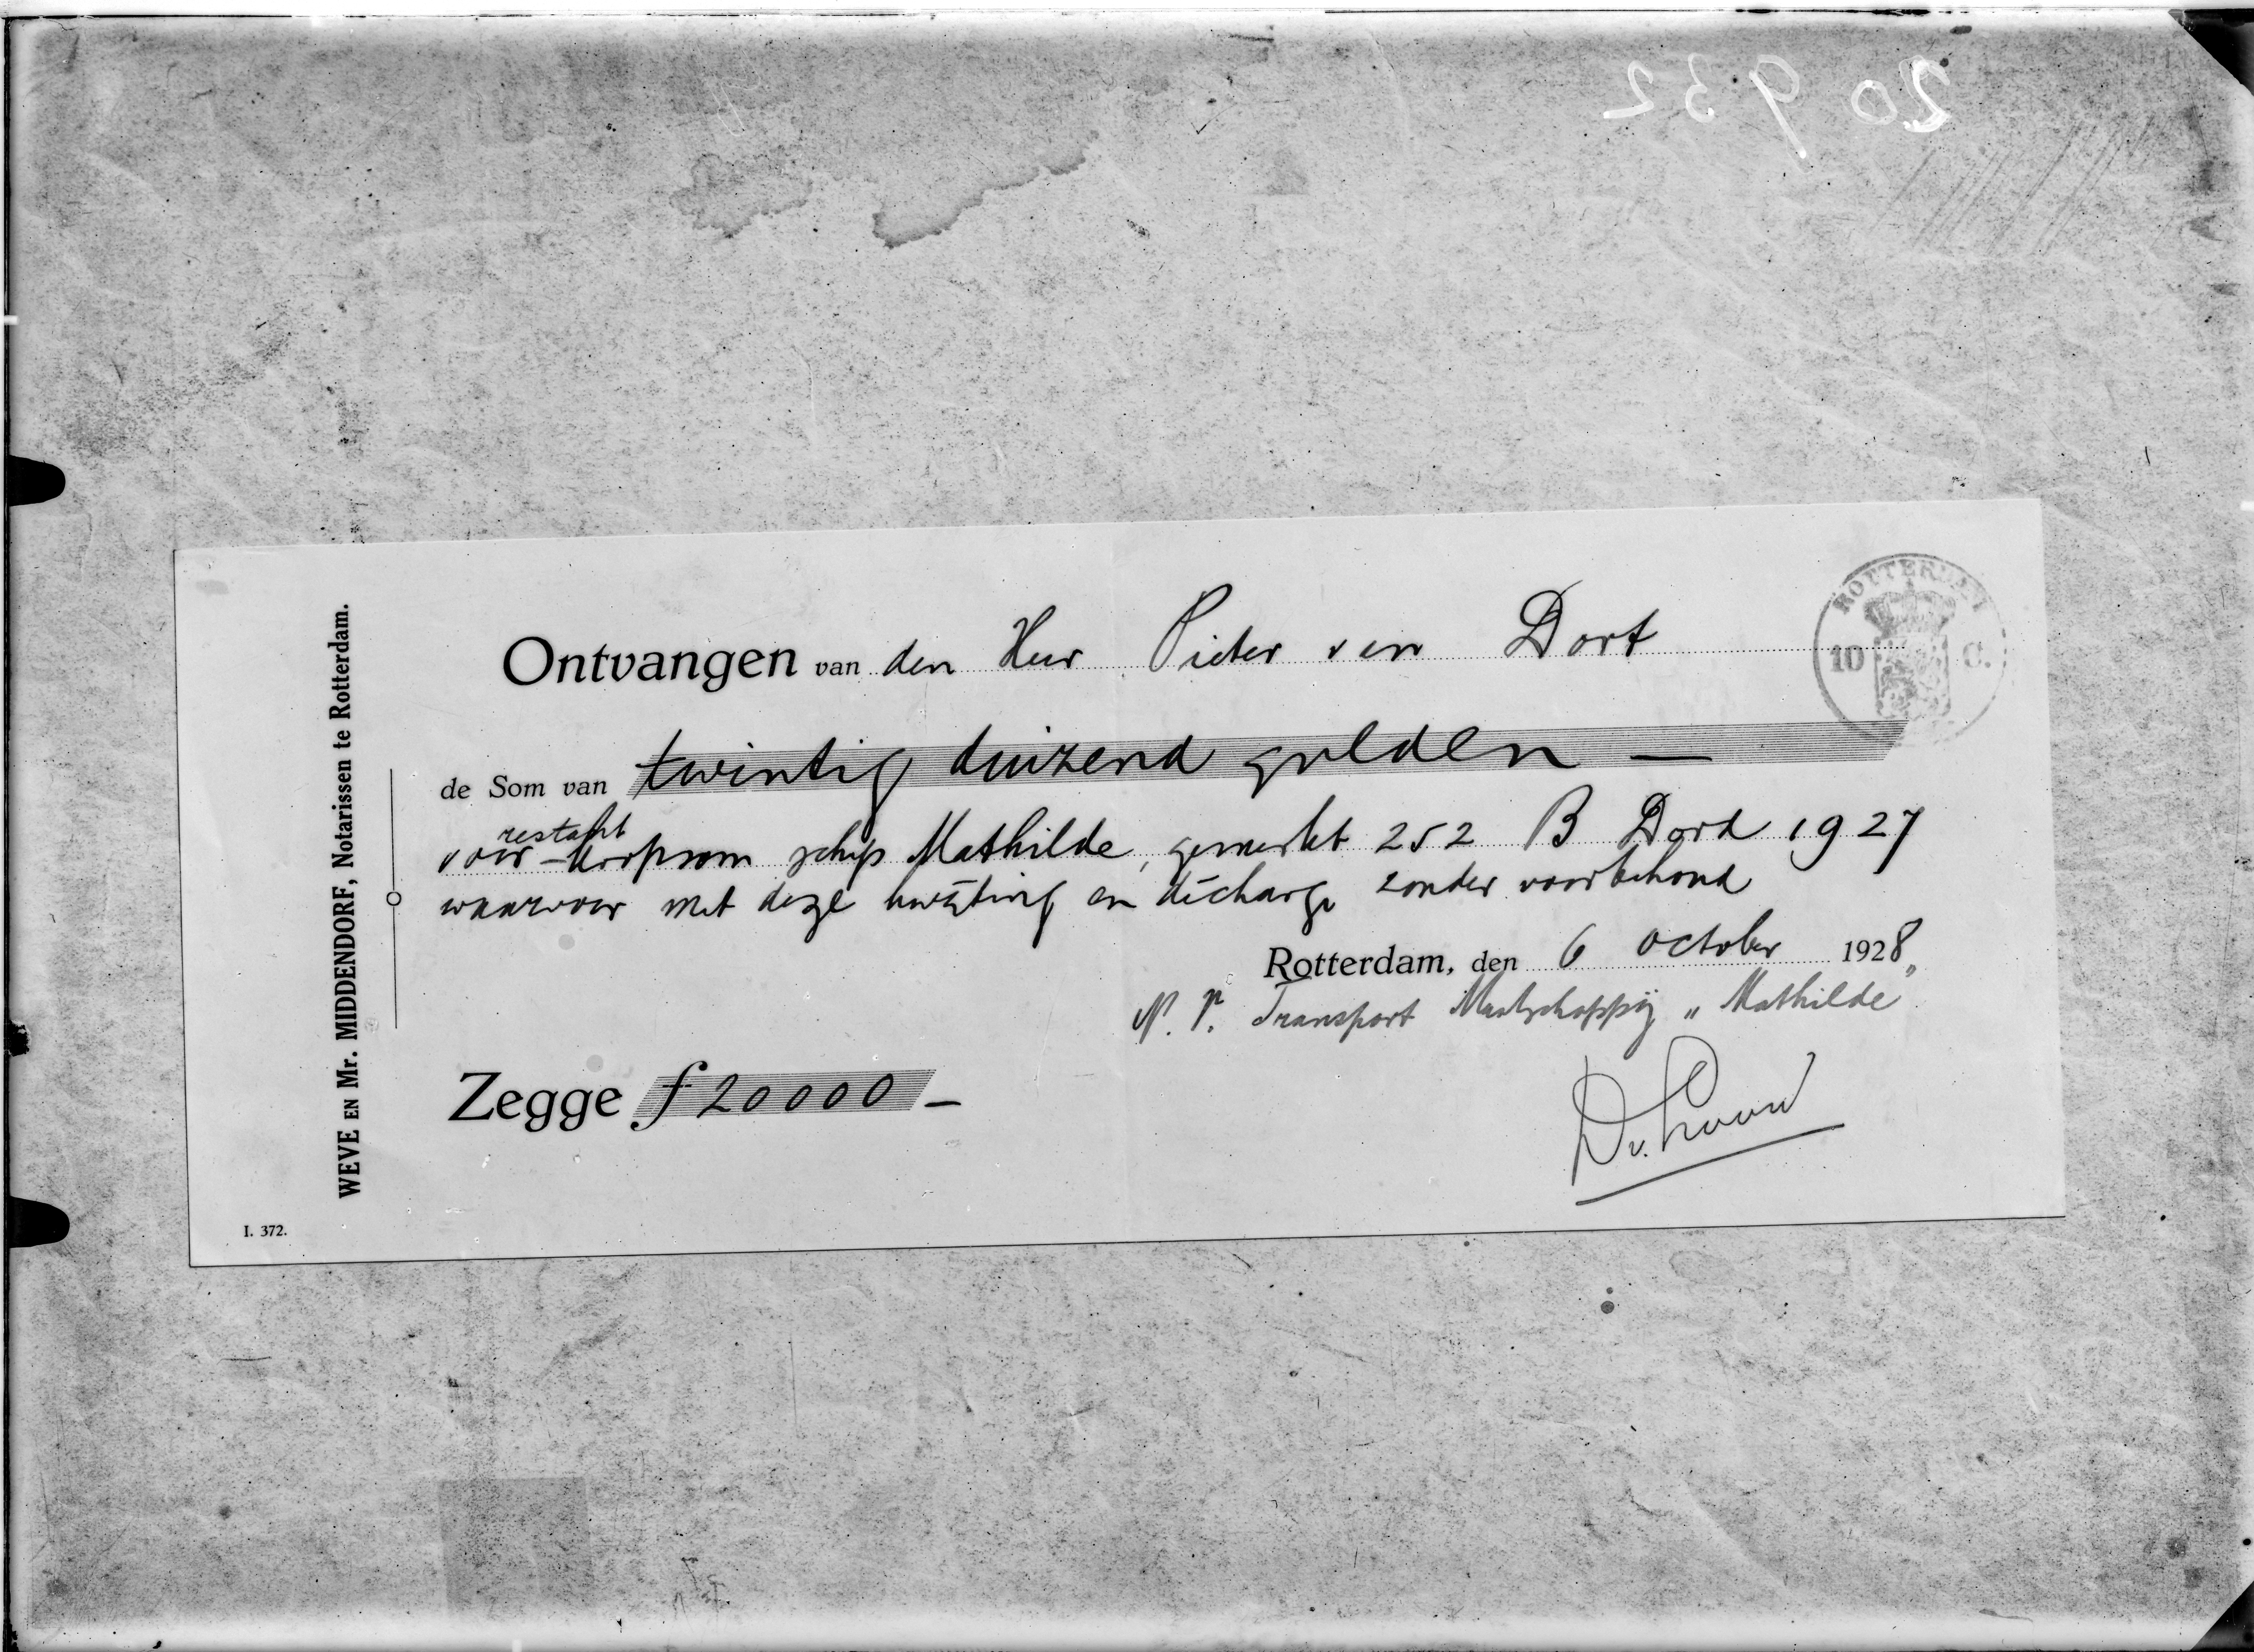 20 932
WEVE EN Mr. MIDDENDORF, Notarissen te Rotterdam.
ROTTERDAM
10 C.
Ontvangen van den Heer Pieter van Dort
de Som van twintig duizend gulden —
restant
voor koopsom schip Mathilde, gemerkt 252 B Dord 1927
waarvoor met deze kwijting en décharge zonder voorbehoud
Rotterdam, den 6 October 1928
N. V. Transport Maatschappij „Mathilde"
Zegge f 20000 —
I. 372.